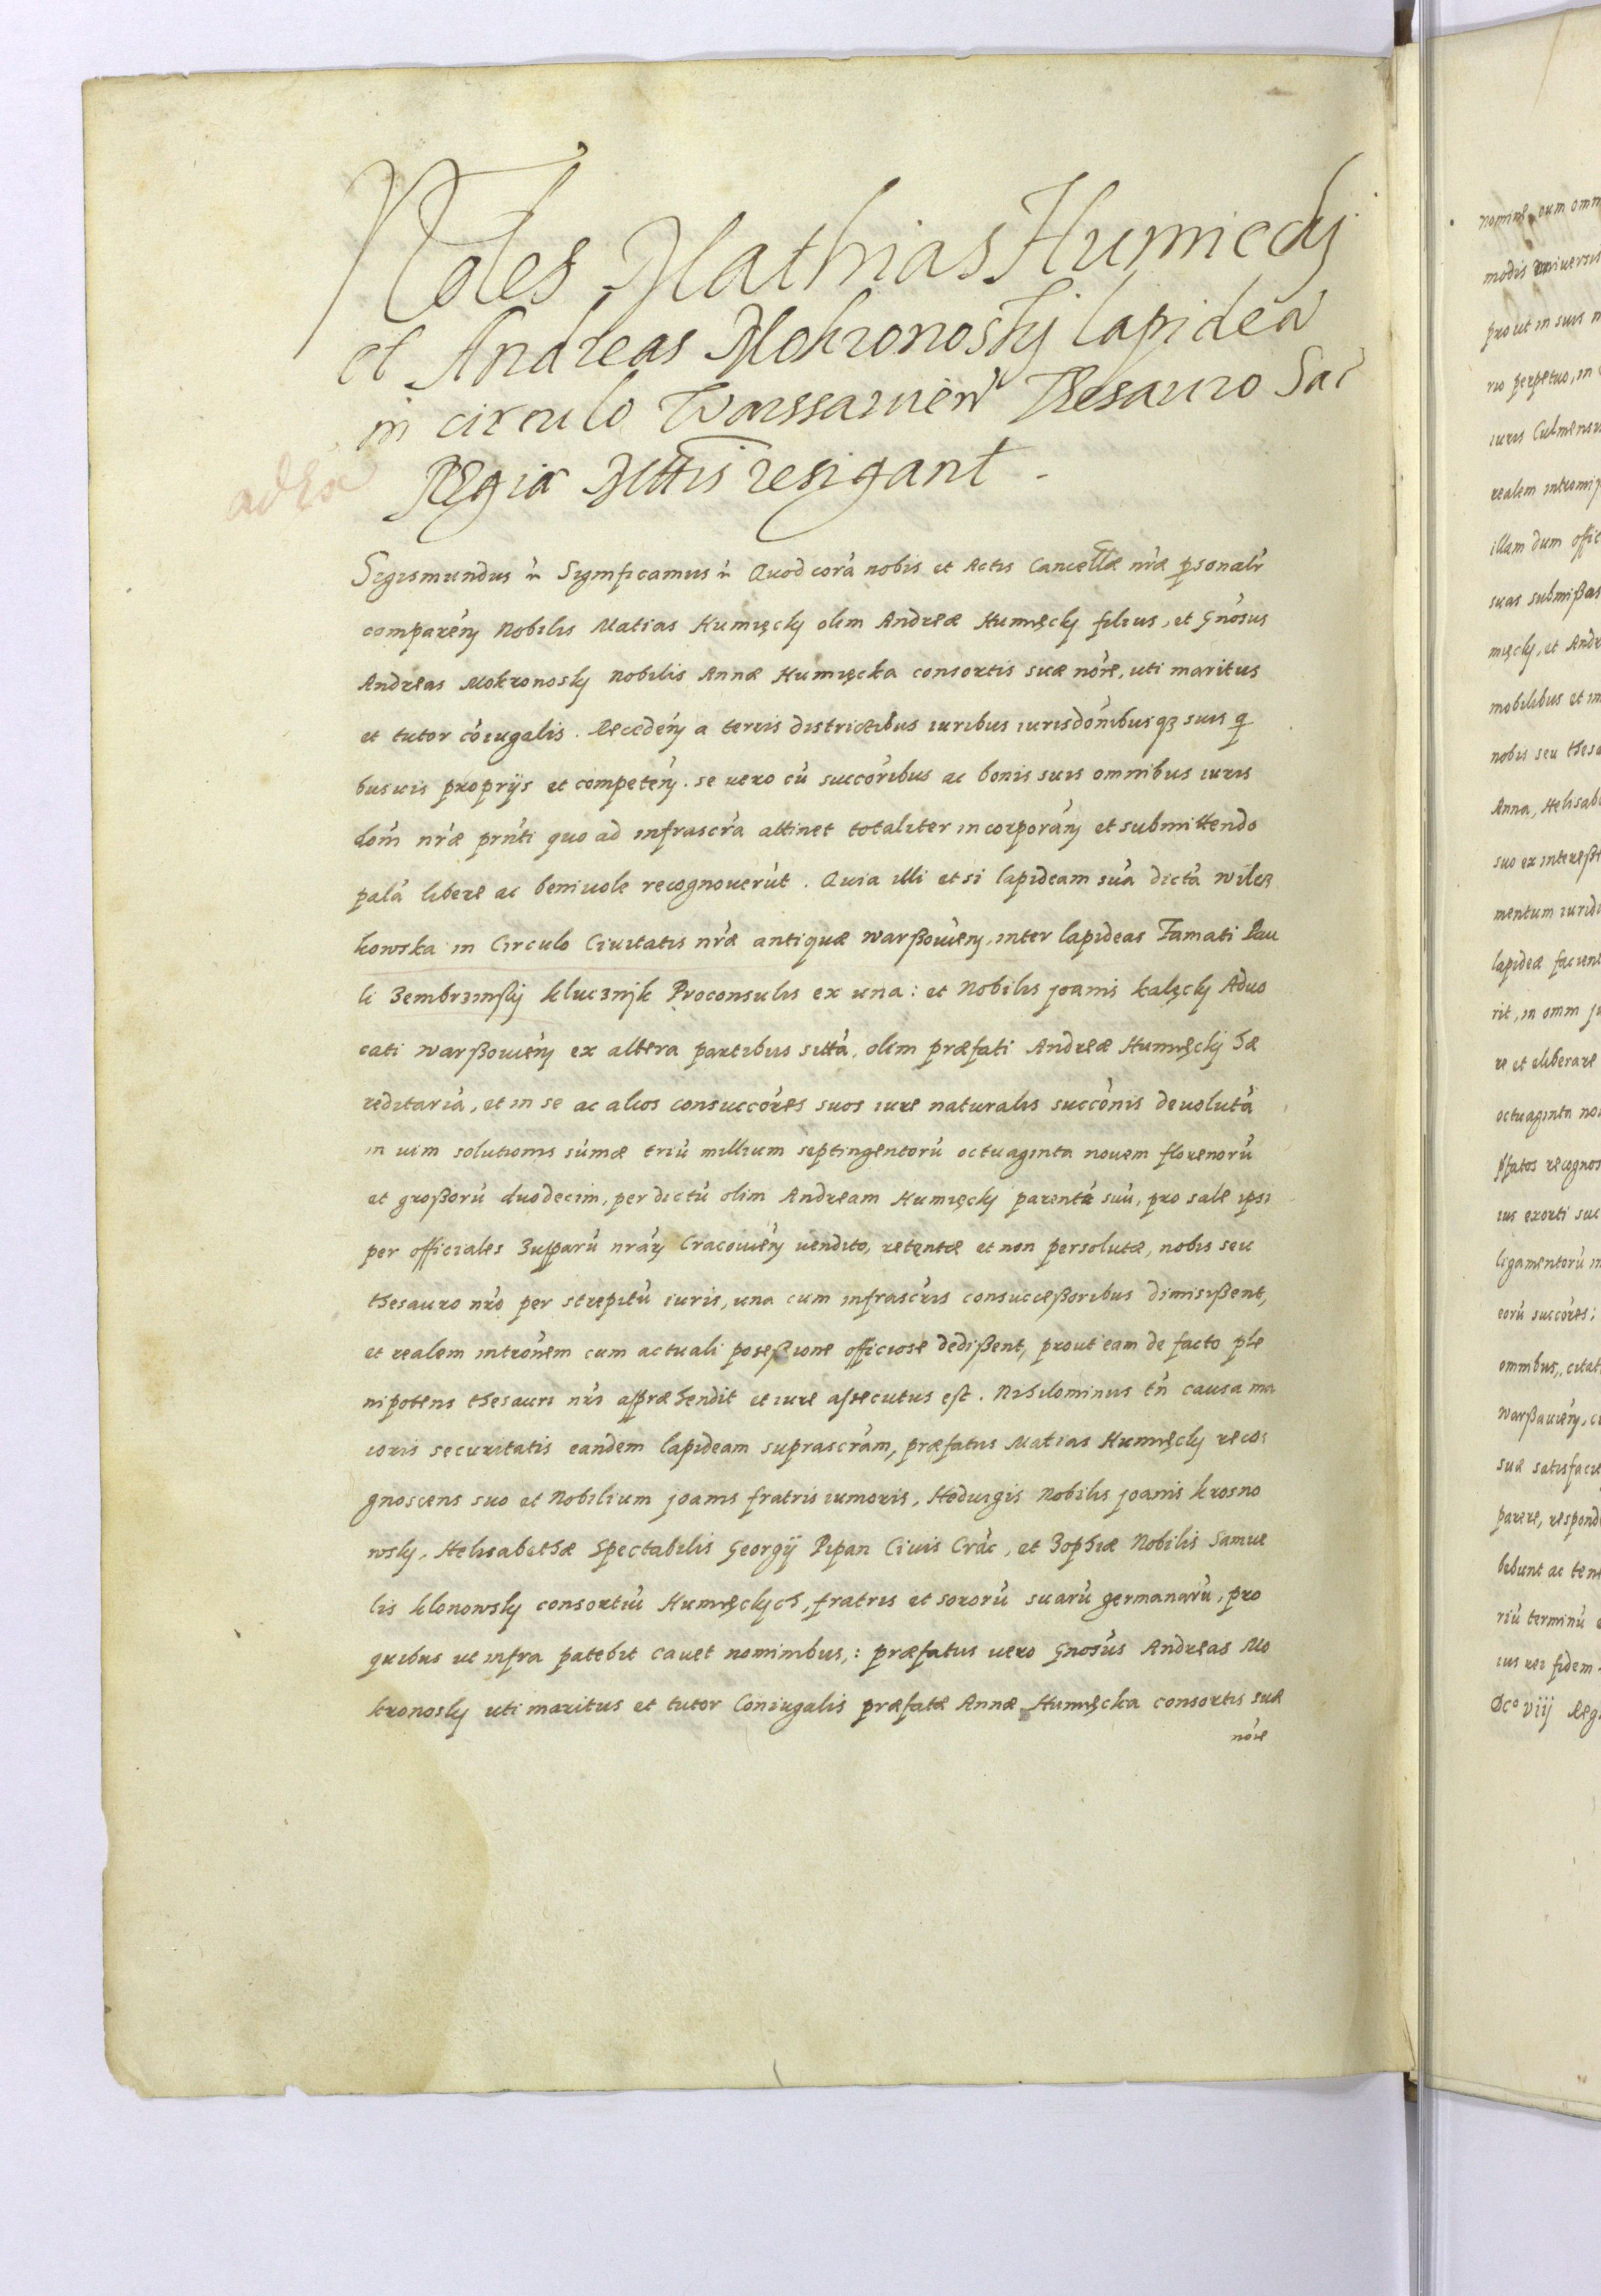 Nobles Mathias Humiecky
et Andreas Mokronosky lapideã
in circulo Warssavieñ Thesauro Sac̃
Regiæ Mttis resignant.
ad Ex
Sigismundus &c̃ Significamus &c̃ Quod corã nobis et Actis Cancellæ nr̃æ psonalr̃
comparẽn Nobilis Matias Humięcky olim Andreæ Humięcky filius, et Gñosus
Andreas Mokronosky nobilis Annæ Humięcka consortis suæ nõie, uti maritus
et tutor cõiugalis. Recedẽn a terris districtibus iuribus iurisdõnibusq3 suis q
busuis proprijs et competẽn. se uero cũ succõribus ac bonis suis omnibus iuris
dõni nr̃æ prñti quo ad infrascr̃a attinet totaliter incorporãn et submittendo
palã libere ac beniuole recognouerũt. Quia illi etsi lapideam suã dictã Wilcz
kowska in Circulo Ciuitatis nr̃æ antiquæ Warßouiẽn, inter lapideas Famati Pau
li Zembrzusky klucznik Proconsulis ex una: et Nobilis Joanis kałęcky Aduo
cati Warßouiẽn ex altera partibus sittã, olim præfati Andreæ Humięcky hæ
reditariã, et in se ac alios consuccõres suos iure naturalis succõnis deuolutã
in uim solutionis sũmæ triũ millium septingentorũ octuaginta nouem florenorũ
et großorũ duodecim, per dictũ olim Andream Humięcky parentẽ suũ, pro sale ipsi
per officiales Zupparũ nrãr Cracouiẽn uendito, retentæ et non persolutæ, nobis seu
thesauro nr̃o per strepitũ iuris, una cum infrascris̃ consucceßoribus dimisißent,
et realem intrõnem cum actuali poseßione officiose dedißent, prout eam de facto ple
nipotens thesauri nr̃i appræhendit et iure assecutus est. Nihilominus tñ causa ma
ioris securitatis eandem lapideam suprascr̃am, præfatus Matias Humięcky reco:
gnoscens suo et Nobilium Joanis fratris iunioris, Heduigis Nobilis Joanis krosno
wsky, Helisabethæ Spectabilis Georgij Pipan Ciuis Crãc, et Zophiæ Nobilis Samue
lis klonowsky consortiũ Humięckych, fratris et sororũ suarũ germanarũ, pro
quibus ut infra patebit cauet nominibus,: præfatus uero Gnõsus Andreas Mo
kronosky uti maritus et tutor Coniugalis præfatæ Annæ Humięcka consortis suæ
nõie
nomine, cum omn
modis universis
prout in suis
rio perpetuo, in
iuris Culmensis
realem intromiß
illam dum offic
suas submißas
mięcky, et Andr
mobilibus et im
nobis seu thesa
Anna, Helisab
suo ex intereßi
mentum iuridi
lapideæ facient
rit, in omni ju
re et eliberare
octuaginta no
pfatos recognos
ius exorti suc
ligamentorũ
eorũ succõres:
omnibus, citat
Warßauiẽn, c
suæ satisfacie
parere, respond
bebunt ac ten
riũ terminũ
ius rei fidem
Dco viij Reg